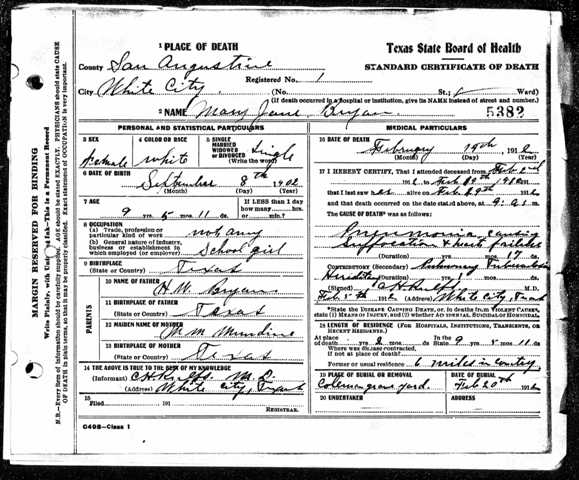 1 PLACE OF DEATH
Texas State Board of Health
STANDARD CERTIFICATE OF DEATH
County San Augustine
Registered No. 1
City White City. (No. St.; Ward
(If death occurred in a hospital or institution, give its NAME instead of street and number.)
2 NAME Mary Jane Bryan. 5382
PERSONAL AND STATISTICAL PARTICULARS
3 SEX Female
4 COLOR OR RACE white
5 SINGLE MARRIED WIDOWED OR DIVORCED (Write the word) Single
6 DATE OF BIRTH
September 8th 1902
(Month) (Day) (Year)
7 AGE
If LESS than 1 day how many hrs. or min.?
9 yrs. 5 mos. 11 ds.
8 OCCUPATION
(a) Trade, profession or particular kind of work not any
(b) General nature of industry, business or establishment in which employed (or employer) School girl
9 BIRTHPLACE
(State or Country) Texas
PARENTS
10 NAME OF FATHER H. W. Bryan
11 BIRTHPLACE OF FATHER
(State or Country) Texas
12 MAIDEN NAME OF MOTHER M. M. Mundine
13 BIRTHPLACE OF MOTHER
(State or Country) Texas
14 THE ABOVE IS TRUE TO THE BEST OF MY KNOWLEDGE
(Informant) M. D.
(Address) White City, Texas
15
Filed 191
REGISTRAR.
C408-Class 1
MEDICAL PARTICULARS
16 DATE OF DEATH
February 19th 1912
(Month) (Day) (Year)
17 I HEREBY CERTIFY, That I attended deceased from Feb 2nd
1912, to Feb 19th 1912
that I last saw her alive on Feb 19th 1912
and that death occurred on the date stated above, at 9. a. m.
The CAUSE OF DEATH was as follows:
Pneumonia, causing
Suffocation & heart failure
(Duration) yrs. mos. 17 ds.
CONTRIBUTORY (Secondary) Pulmonary Tuberculosis
Hereditary (Duration) yrs. mos. ds.
(Signed) M.D.
1912 (Address) White City, Texas
*State the DISEASE CAUSING DEATH, or, in deaths from VIOLENT CAUSES, state (1) MEANS OF INJURY, and (2) whether ACCIDENTAL, SUICIDAL or HOMICIDAL.
18 LENGTH OF RESIDENCE (FOR HOSPITALS, INSTITUTIONS, TRANSIENTS, OR RECENT RESIDENTS.)
At place of death yrs. 2 mos. ds. In the State 9 yrs. 5 mos. 11 ds.
Where was disease contracted, if not at place of death?
Former or usual residence 6 miles in country
19 PLACE OF BURIAL OR REMOVAL
Coleman grave yard.
DATE OF BURIAL
Feb 20th 1912
20 UNDERTAKER
ADDRESS
MARGIN RESERVED FOR BINDING
Write Plainly, with Unfading Ink—This is a Permanent Record
N. B.—Every item of information should be carefully supplied. AGE should be stated EXACTLY. PHYSICIANS should state CAUSE OF DEATH in plain terms, so that it may be properly classified. Exact statement of OCCUPATION is very important.